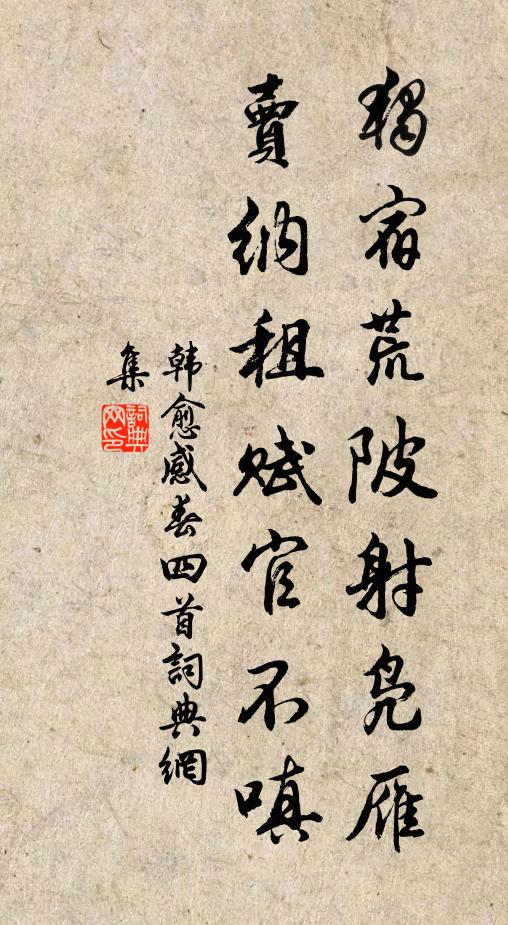 獨宿荒陂射鳧雁
賣納租賦官不嗔
韩愈感春四首詞典網
集
詞典
网印